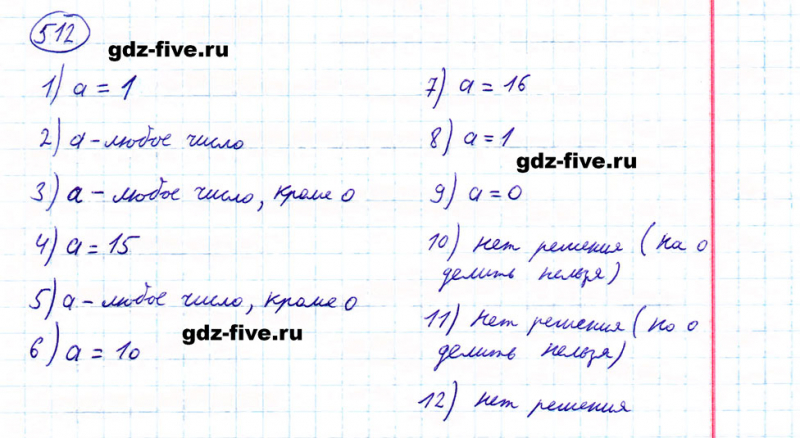 512
gdz-five.ru
1) a = 1
2) a - любое число
3) a - любое число, кроме 0
4) a = 15
5) a - любое число, кроме 0
gdz-five.ru
6) a = 10
7) a = 16
8) a = 1
gdz-five.ru
9) a = 0
10) нет решения (на 0
делить нельзя)
11) нет решения (на 0
делить нельзя)
12) нет решения